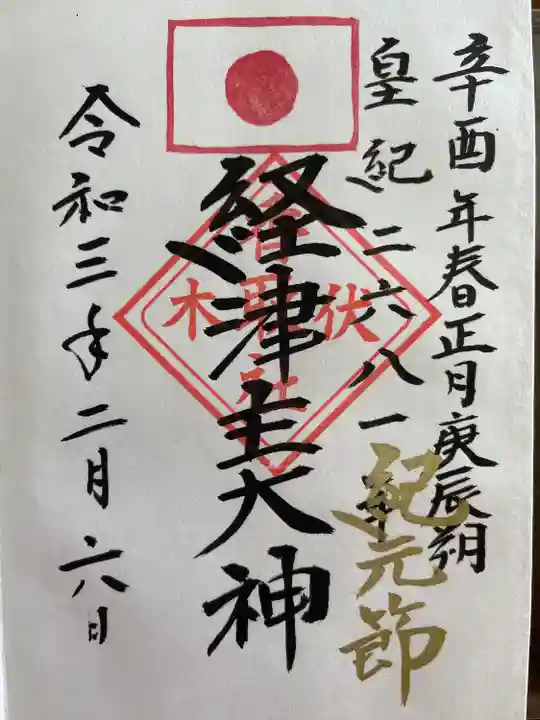 辛酉年春正月庚辰朔
皇紀二六八一年
紀元節
経津主大神
伏木
春日社
令和三年二月六日